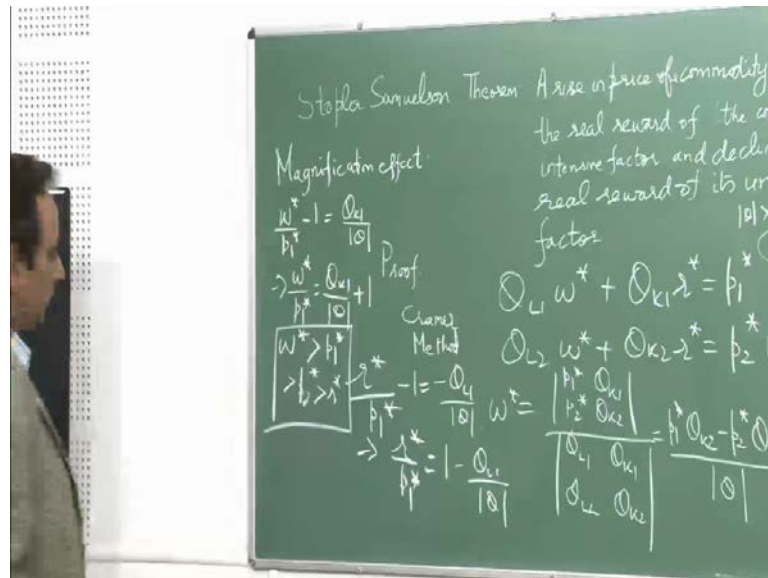 Stopler Samuelson Theorem A rise in price of commodity
the real reward of the
intensive factor and
real reward of its
factor
Magnification effect
w*/p₁* - 1 = θK1/|θ|
→ w*/p₁* = θK1/|θ| + 1
Proof
|θ|
θL1 w* + θK1 r* = p₁*
θL2 w* + θK2 r* = p₂*
Cramer
Method
w* > p₁*
> p₂* > r*
r*/p₁* - 1 = -θL1/|θ|
→ r*/p₁* = 1 - θL1/|θ|
w* = |p₁* θK1; p₂* θK2| / |θL1 θK1; θL2 θK2| = p₁* θK2 - p₂* θ / |θ|